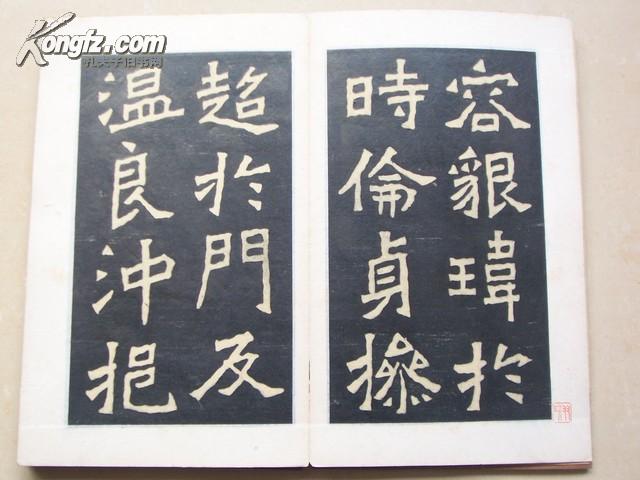 容貌瑋於
時倫貞摻
超於門及
温良沖挹
Kongfz.com
孔夫子旧书网